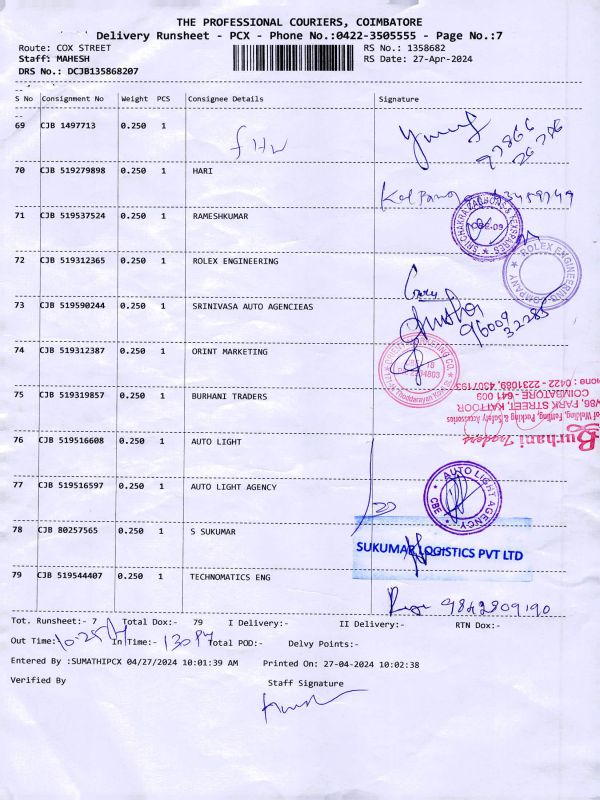 THE PROFESSIONAL COURIERS, COIMBATORE
Delivery Runsheet - PCX - Phone No.:0422-3505555 - Page No.:7
Route: COX STREET RS No.: 1358682
Staff: MAHESH RS Date: 27-Apr-2024
DRS No.: DCJB135868207
S No Consignment No Weight PCS Consignee Details Signature
69 CJB 1497713 0.250 1
70 CJB 519279898 0.250 1 HARI
71 CJB 519537524 0.250 1 RAMESHKUMAR
72 CJB 519312365 0.250 1 ROLEX ENGINEERING
ROLEX ENGINEERING
73 CJB 519590244 0.250 1 SRINIVASA AUTO AGENCIEAS
96009 32285
74 CJB 519312387 0.250 1 ORINT MARKETING
75 CJB 519319857 0.250 1 BURHANI TRADERS
Burhani Traders
of Welding, Fettling, Packing & Safety Accessories
W86, PARK STREET, KATTOOR
COIMBATORE - 641 009
76 CJB 519516608 0.250 1 AUTO LIGHT
77 CJB 519516597 0.250 1 AUTO LIGHT AGENCY
AUTO LIGHT AGENCY CBE
78 CJB 80257565 0.250 1 S SUKUMAR
SUKUMAR LOGISTICS PVT LTD
79 CJB 519544407 0.250 1 TECHNOMATICS ENG
9842809190
Tot. Runsheet:- 7 Total Dox:- 79 I Delivery:- II Delivery:- RTN Dox:-
Out Time:- 10-25 In Time:- 130 Total POD:- Delvy Points:-
Entered By :SUMATHIPCX 04/27/2024 10:01:39 AM Printed On: 27-04-2024 10:02:38
Verified By Staff Signature